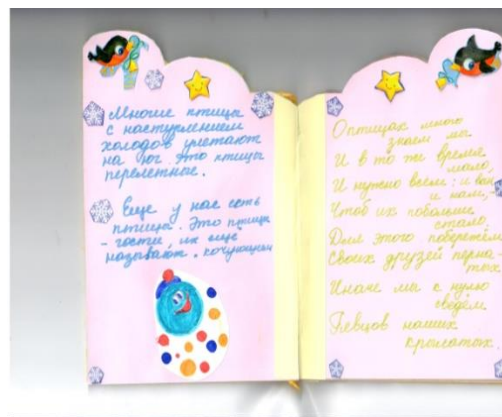 Многие птицы
с наступлением
холодов улетают
на юг. Это птицы
перелетные.
Еще у нас есть
птицы. Это птицы
- гости их еще
называют. кочующими
О птицах много
знаем мы
И в то же время
мало,
И нужно всем: и вам,
и нам,-
Чтоб их побольше
стало.
Для этого побережём
Своих друзей перна-
тых
Иначе мы к нулю
сведём
Певцов наших
крылатых.